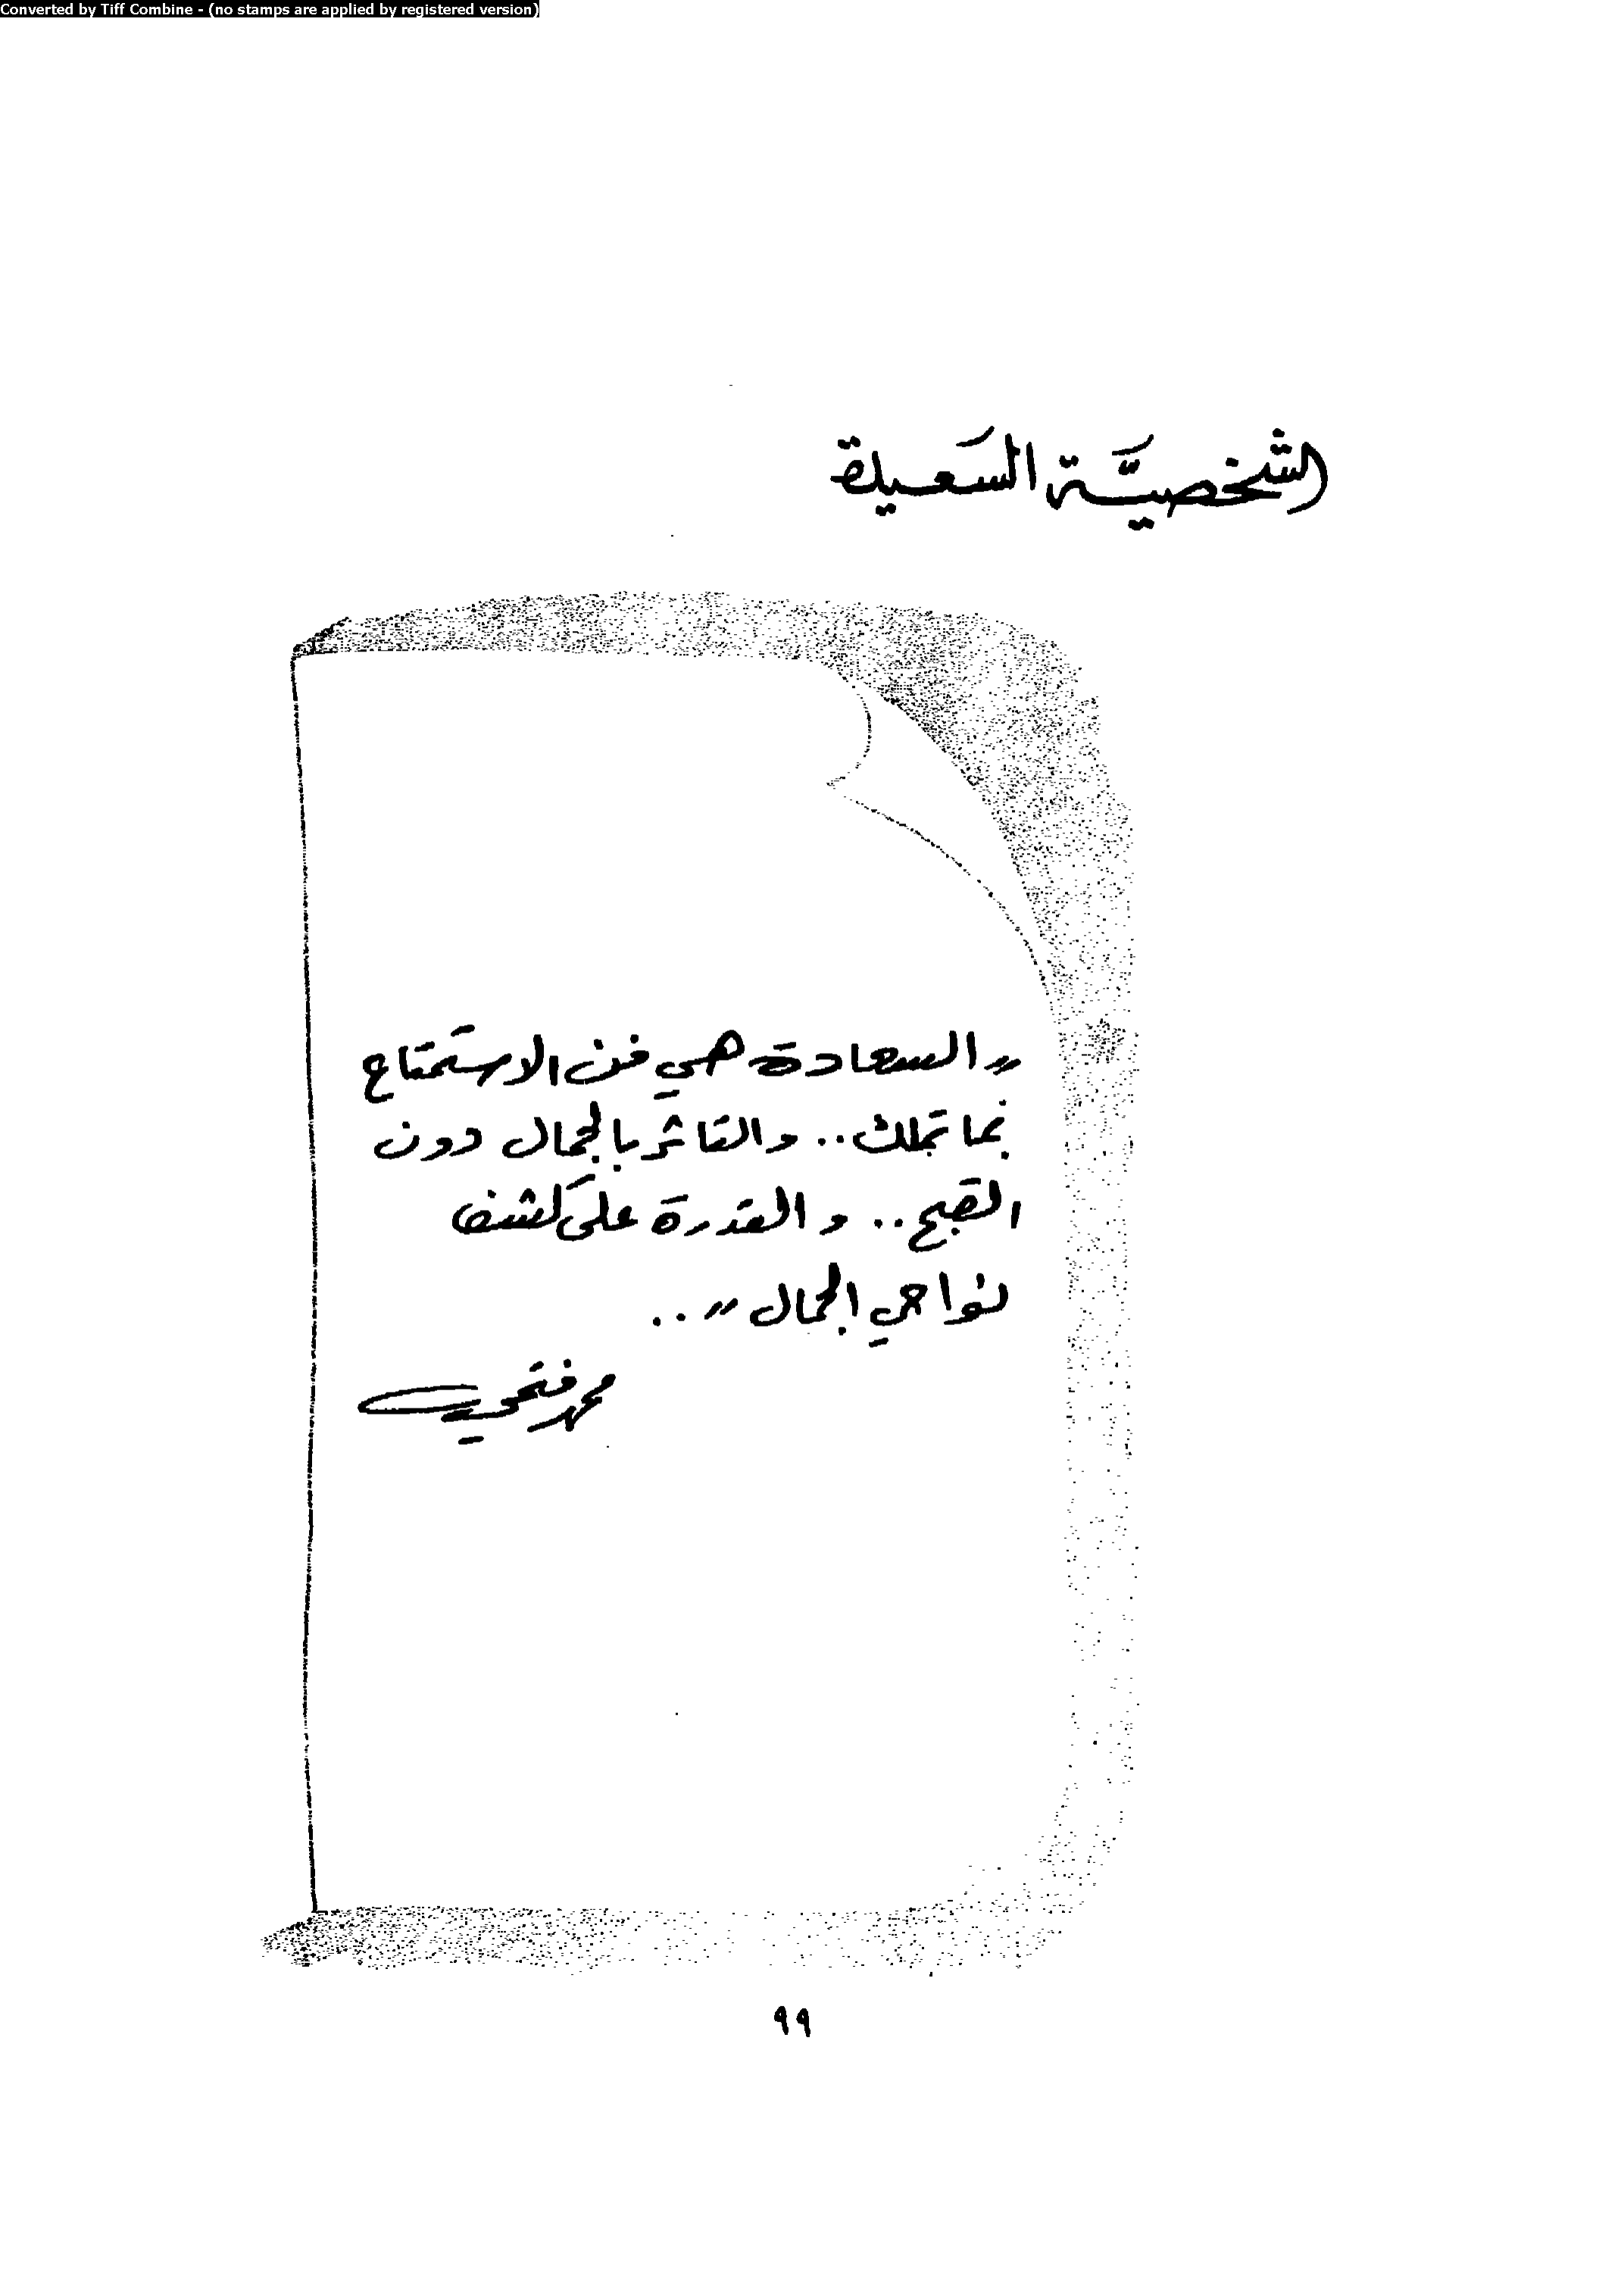 Converted by Tiff Combine - (no stamps are applied by registered version)
الشخصيَّة السَعيدة
"السعادة هي فن الاستمتاع
بما تملك.. والتاثر بالجمال دون
القبح.. والقدرة على كشف
نواحي الجمال"..
محمد فتحي
٩٩